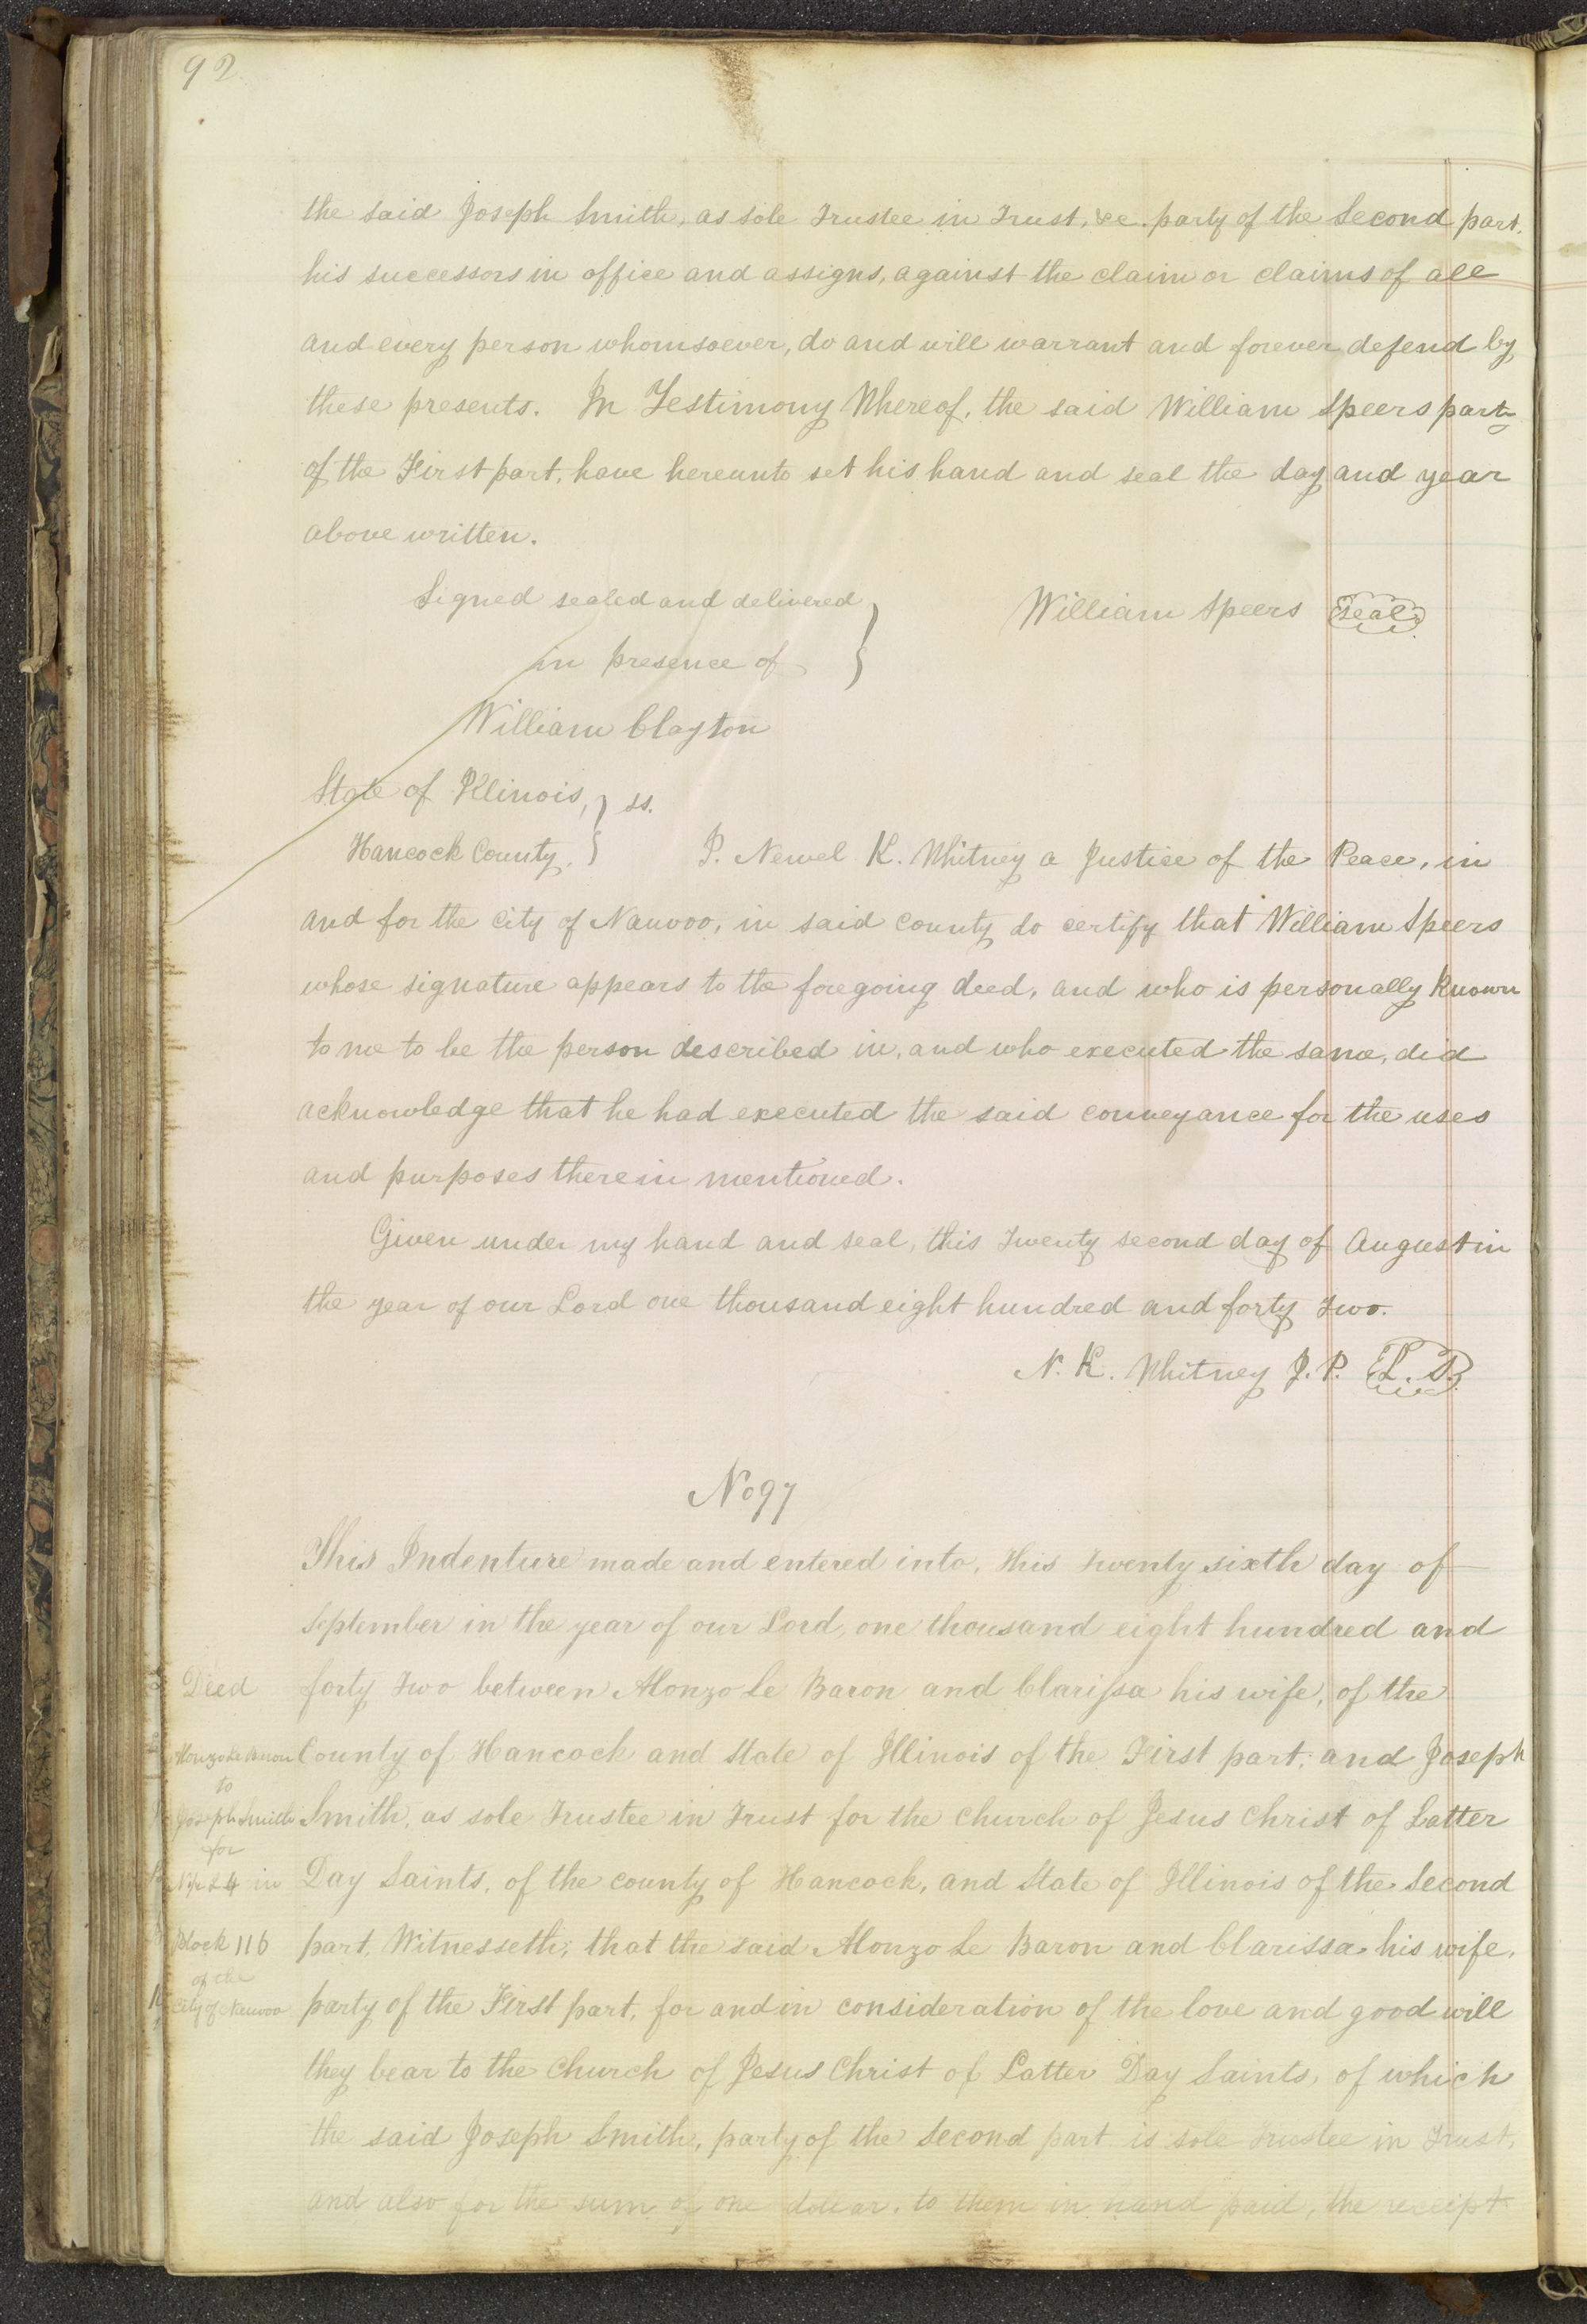 92
the said Joseph Smith, as sole Trustee in Trust, &c. party of the Second part,
his successors in office and assigns, against the claim or claims of all
and every person whomsoever, do and will warrant and forever defend by
these presents. In Testimony Whereof, the said William Speers party
of the First part, have hereunto set his hand and seal the day and year
above written.
Signed sealed and delivered
William Speers Seal
in presence of
William Clayton
State of Illinois, } ss.
Hancock County, I. Newel K. Whitney a Justice of the Peace, in
and for the City of Nauvoo, in said County do certify that William Speers
whose signature appears to the foregoing deed, and who is personally known
to me to be the person described in, and who executed the same, did
acknowledge that he had executed the said conveyance for the uses
and purposes therein mentioned.
Given under my hand and seal, this Twenty second day of August in
the year of our Lord one thousand eight hundred and forty Two.
N. K. Whitney J. P. L. S.
No 97
This Indenture made and entered into, this Twenty sixth day of
September in the year of our Lord, one thousand eight hundred and
Deed
forty Two between Alonzo Le Baron and Clarissa his wife, of the
Alonzo Le Baron
County of Hancock and State of Illinois of the First part; and Joseph
to
Joseph Smith
Smith, as sole Trustee in Trust for the Church of Jesus Christ of Latter
for
in
Day Saints, of the county of Hancock, and State of Illinois of the Second
Block 116
part, Witnesseth; that the said Alonzo Le Baron and Clarissa his wife,
of the
City of Nauvoo
party of the First part, for and in consideration of the love and good will
they bear to the Church of Jesus Christ of Latter Day Saints, of which
the said Joseph Smith, party of the Second part is sole Trustee in Trust,
and also for the sum of one dollar, to them in hand paid, the receipt